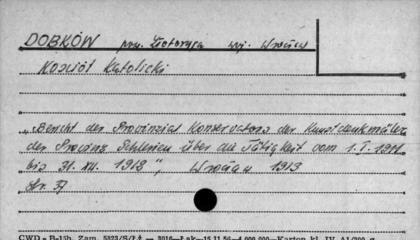 DOBKÓW pow. Złotoryja woj. Wrocław
Kościół Katolicki
"Bericht des Provinzial Konservators der Kunstdenkmäler
der Provinz Schlesien über die Tätigkeit vom 1.I.1911
bis 31.XII. 1912", Wrocław 1913
str. 37
CWD - B-15b. Zam. 5323/S/Łż — 3016—Łak—15.11.56—4.000.000—Karton kl. IV A1/200 g